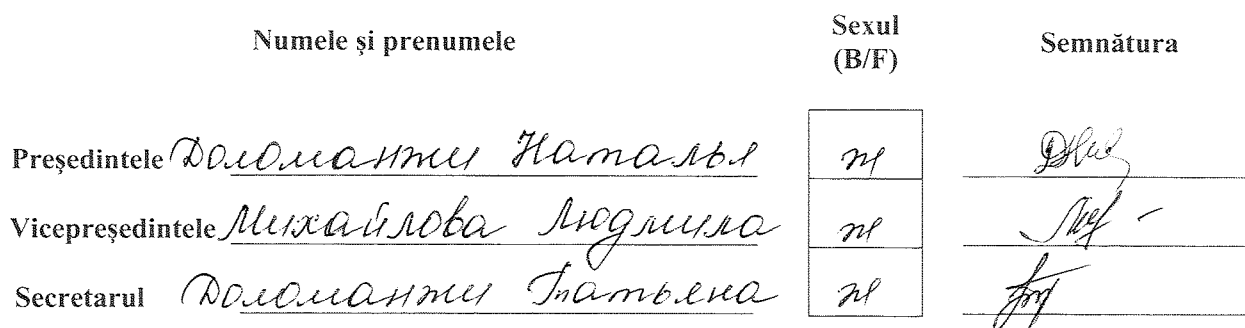 Numele și prenumele Sexul (B/F) Semnătura
Președintele Доломанжи Наталья ж
Vicepreședintele Михайлова Людмила ж
Secretarul Доломанжи Татьяна ж